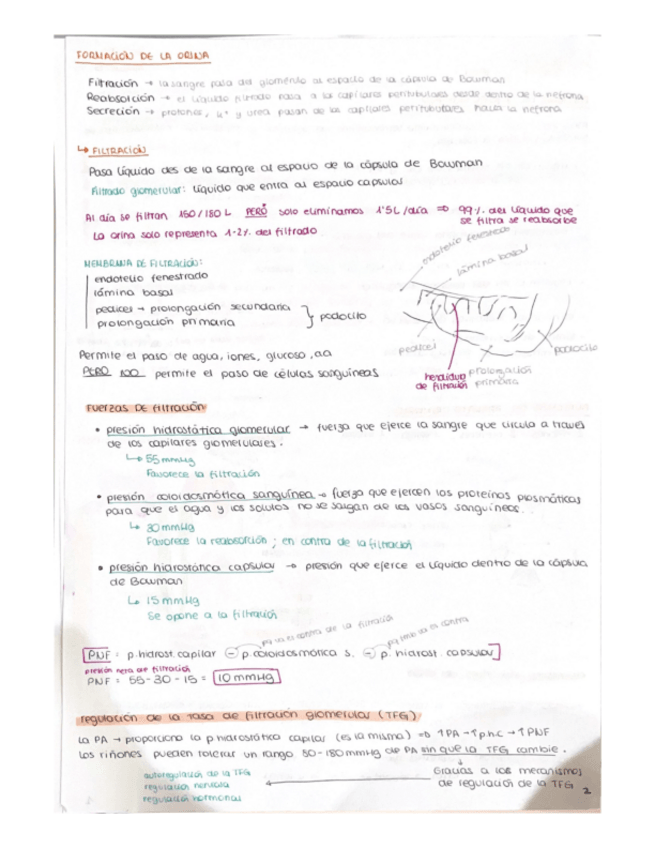 FORMACIÓN DE LA ORINA
Filtración → la sangre pasa del glomérulo al espacio de la cápsula de Bowman
Reabsorción → el líquido filtrado pasa a los capilares peritubulares desde dentro de la nefrona
Secreción → protones, K⁺ y urea pasan de los capilares peritubulares hacia la nefrona
↳ FILTRACIÓN
Pasa líquido des de la sangre al espacio de la cápsula de Bowman
Filtrado glomerular: líquido que entra al espacio capsular
Al día se filtran 150/180 L PERO solo eliminamos 1'5L/día ⇒ 99% del líquido que
se filtra se reabsorbe
La orina solo representa 1-2% del filtrado
MEMBRANA DE FILTRACIÓN:
endotelio fenestrado
lámina basal
pedicels → prolongación secundaria
prolongación primaria
} podocito
endotelio fenestrado
lámina basal
pedicel
podocito
hendidura
de filtración
prolongación
primária
Permite el paso de agua, iones, glucosa, aa
PERO NO permite el paso de células sanguíneas
FUERZAS DE FILTRACIÓN
• presión hidrostática glomerular → fuerza que ejerce la sangre que circula a través
de los capilares glomerulares.
↳ 55 mmHg
Favorece la filtración
• presión coloidosmótica sanguínea → fuerza que ejercen las proteínas plasmáticas
para que el agua y los solutos no se salgan de los vasos sanguíneos.
↳ 30 mmHg
Favorece la reabsorción ; en contra de la filtración
• presión hidrostática capsular → presión que ejerce el líquido dentro de la cápsula
de Bowman
↳ 15 mmHg
Se opone a la filtración
va en contra de la filtración
va en contra
PNF = p.hidrost. capilar - p. coloidosmótica s. - p. hidrost. capsular
presión neta de filtración
PNF = 55-30-15 = 10 mmHg
regulación de la tasa de filtración glomerular (TFG)
La PA → proporciona la p hidrostática capilar (es la misma) ⇒ ↑PA → ↑p.h.c → ↑PNF
Los riñones pueden tolerar un rango 80-180 mmHg de PA sin que la TFG cambie.
Gracias a los mecanismos
de regulación de la TFG
autorregulación de la TFG
regulación nerviosa
regulación hormonal
2